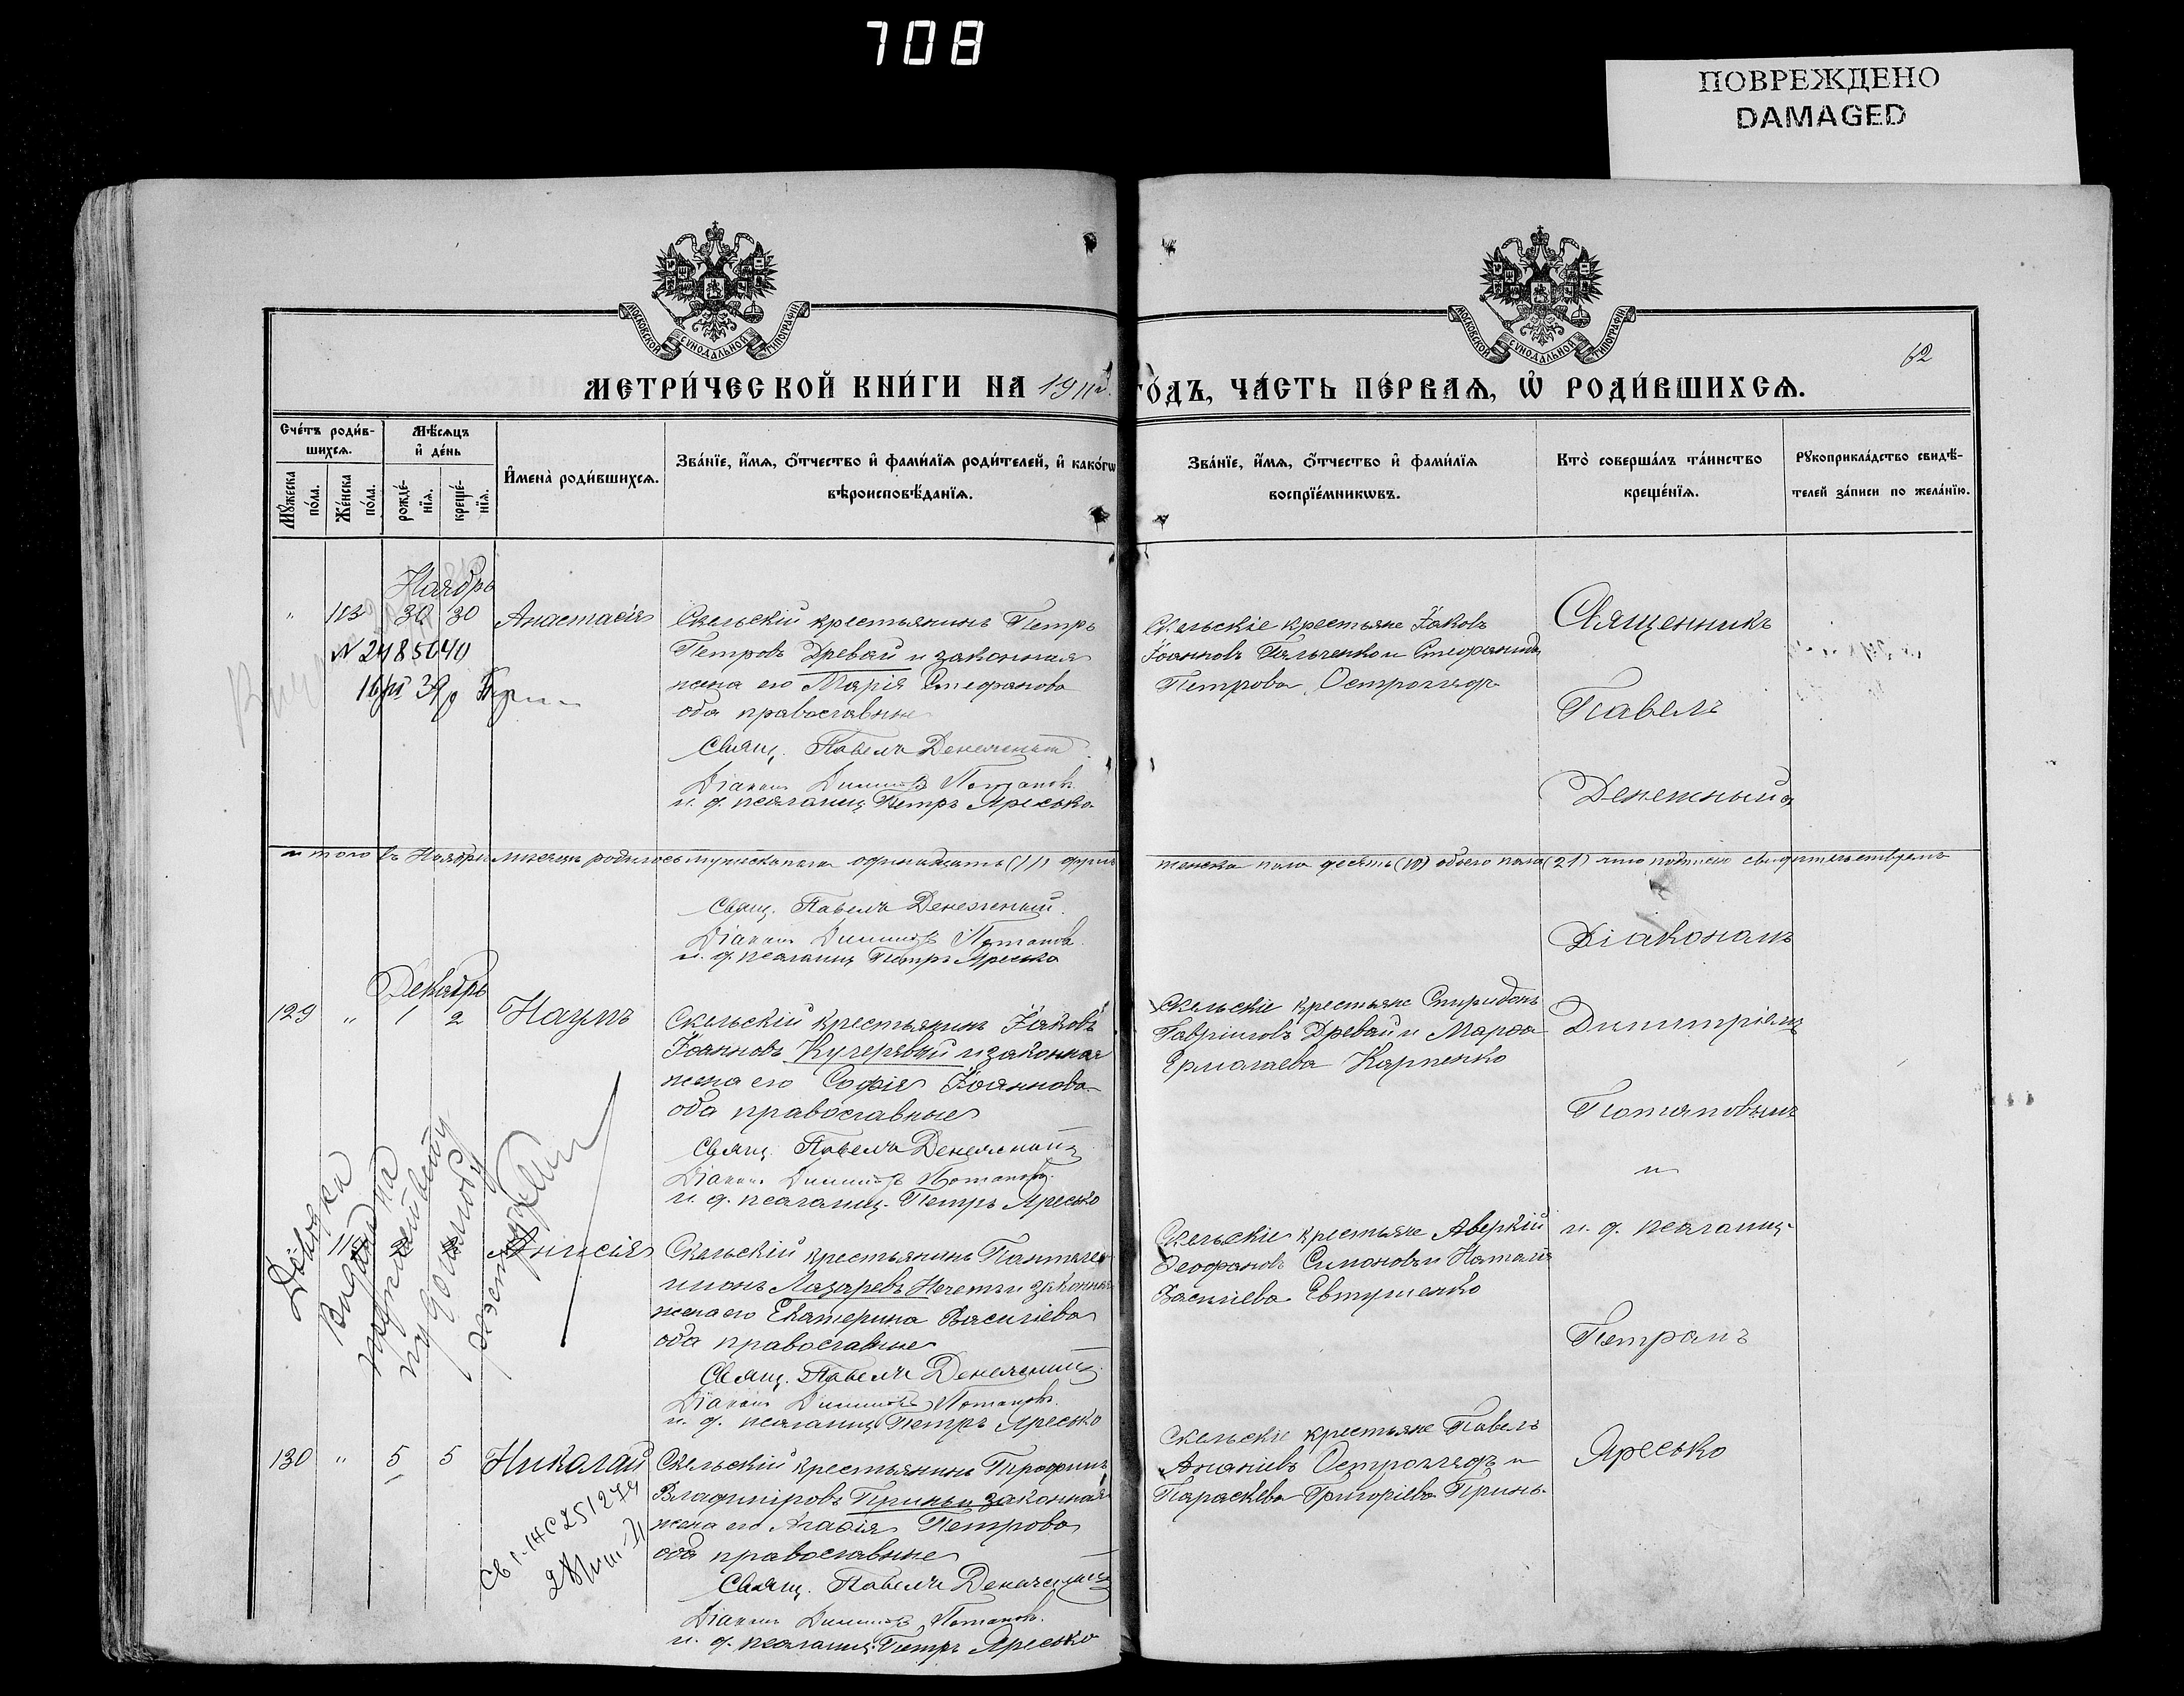 708
ПОВРЕЖДЕНО
DAMAGED
МОСКОВСКОЙ СѴНОДАЛЬНОЙ ТИПОГРАФІИ
МОСКОВСКОЙ СѴНОДАЛЬНОЙ ТИПОГРАФІИ
62
МЕТРИ́ЧЕСКОЙ КНИ́ГИ НА 1911
ГО́ДЪ, ЧА́СТЬ ПЕ́РВАѦ, Ѡ҆ РОДИ́ВШИХСѦ.
Сче́тъ роди́в-
шихсѧ.
Мѣ́сѧцъ
и҆ де́нь
Мꙋ́жеска
по́ла.
Же́нска
по́ла.
рожде́-
нїѧ.
креще́-
нїѧ.
И҆мена̀ роди́вшихсѧ.
Зва́нїе, и҆́мѧ, ѻ҆́тчество и҆ фами́лїѧ роди́телей, и҆ како́гѡ
вѣроисповѣ́данїѧ.
Зва́нїе, и҆́мѧ, ѻ҆́тчество и҆ фами́лїѧ
воспрїе́мникѡвъ.
Кто̀ соверша́лъ та́инство
креще́нїѧ.
Рꙋкоприкла́дство свидѣ́-
телей за́писи по жела́нїю.
Ноябрь
" 113 30 30 Анастасія
Скельскій крестьянинъ Петръ
Петровъ Древаи и законная
жена его Марія Стефанова
оба православные
Свящ. Павелъ Денежный
Діаконъ Димитрій Потаповъ
и. д. псаломщ. Петръ Яресько
Скельскіе крестьяне Іаковъ
Іоанновъ Пальченко и Стефанида
Петрова Остроглядъ
Священникъ
Павелъ
Денежный съ
итого въ Ноябрѣ мѣсяцѣ родилось мужеска пола одинадцать (11)
женска пола десять (10) обоего пола (21) что подписью свидѣтельствуемъ
Свящ. Павелъ Денежный.
Діаконъ Димитрій Потаповъ
и. д. псаломщ. Петръ Яресько
Діакономъ
Декабрь
129 " 1 2 Наумъ
Скельскій крестьянинъ Іаковъ
Іоанновъ Кучерявый и законная
жена его Софія Іоаннова
оба православные
Свящ. Павелъ Денежный
Діаконъ Димитрій Потаповъ.
и. д. псаломщ. Петръ Яресько
Скельскіе крестьяне Спиридонъ
Гавріиловъ Древаи и Марѳа
Ермолаева Карпенко
Димитріемъ
Потаповымъ
и
Анисія
Скельскій крестьянинъ Пантеле-
имонъ Лазаревъ Нечетъ и законная
жена его Екатерина Васильева
оба православные
Свящ. Павелъ Денежный
Діаконъ Димитрій Потаповъ.
и. д. псаломщ. Петръ Яресько
Скельскіе крестьяне Аверкій
Ѳеофановъ Симоновъ и Наталія
Васильева Евтушенко
и. д. псаломщ.
Петромъ
130 " 5 5 Николай
Скельскій крестьянинъ Трофимъ
Владиміровъ Принь и законная
жена его Агафія Петрова
оба православные
Свящ. Павелъ Денежный
Діаконъ Димитрій Потаповъ.
и. д. псаломщ. Петръ Яресько
Скельскіе крестьяне Павелъ
Ананіевъ Остроглядъ и
Параскева Григоріева Принь.
Яресько